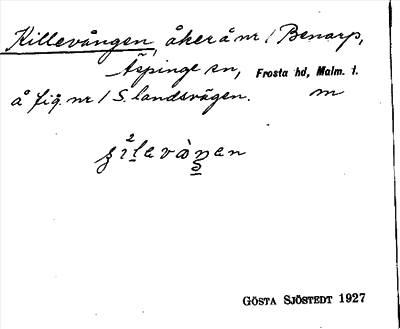 Killevången, åker å nr 1 Benarp,
Äspinge sn, Frosta hd, Malm. l.
å fig. nr 1 S. landsvägen. m
GÖSTA SJÖSTEDT 1927